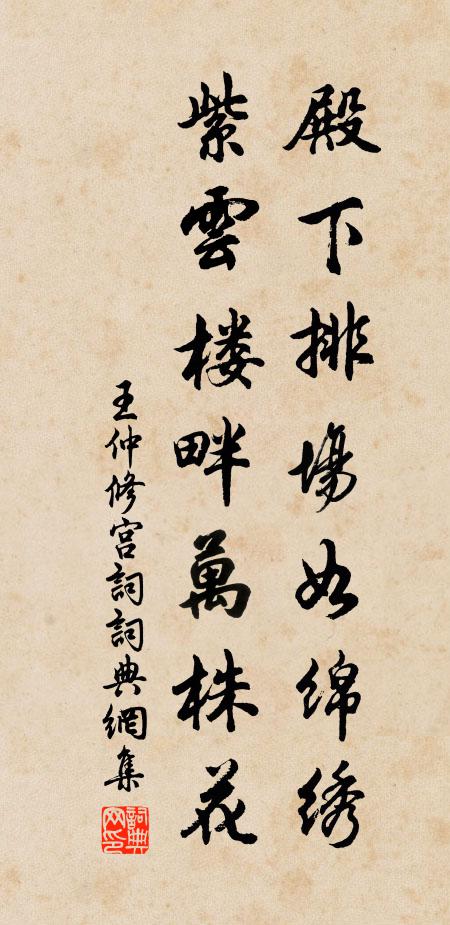 殿下排場如綿绣
紫雲楼畔萬株花
王仲修宫詞詞典網集
詞典网印